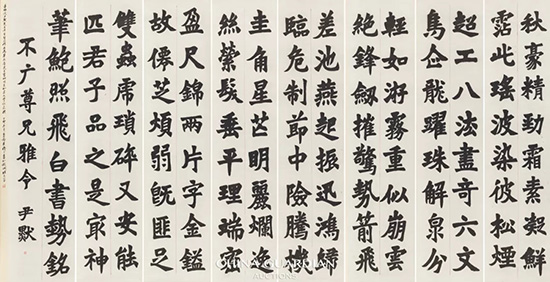 秋豪精勁霜素凝鮮
霑此瑤波染彼松煙
超工八法盡奇六文
鳥企龍躍珠解泉分
輕如游霧重似崩雲
絕鋒劒摧驚勢箭飛
差池燕起振迅鴻歸
臨危制節中險騰機
圭角星芒明麗爛逸
絲縈髮垂平理端密
盈尺錦兩片字金鎰
故僊芝煩弱既匪足
雙蟲虎瑣碎又安能
匹君子品之是冣神
筆鮑照飛白書勢銘
不广尊兄雅令 尹默
CHINA GUARDIAN
AUCTIONS